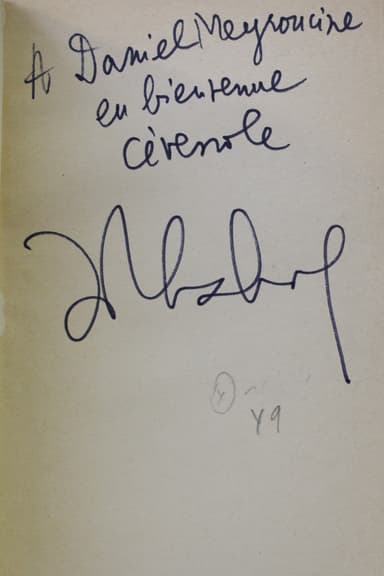 A Daniel Meyroucine
en bienvenue
Cévenole
Y9